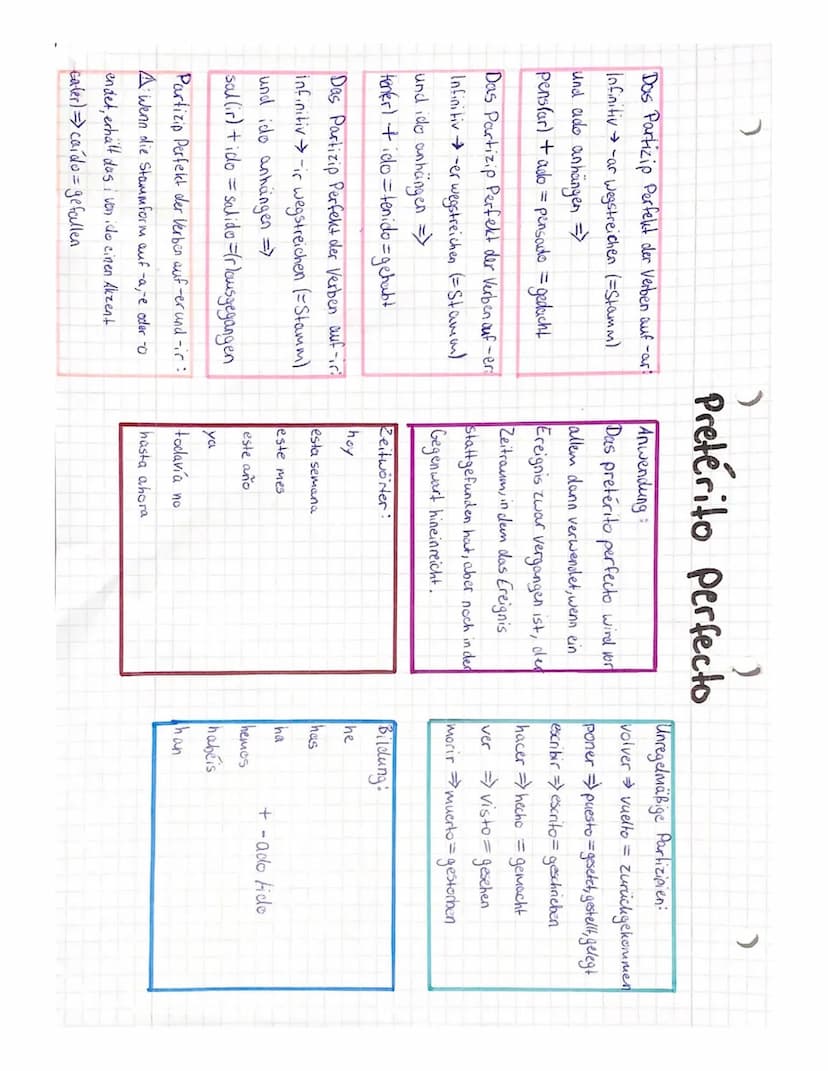 Pretérito perfecto
Das Partizip Perfekt der Verben auf -ar:
Infinitiv → -ar wegstreichen (=Stamm)
und ado anhängen =>
pens(ar) + ado = pensado = gedacht
Das Partizip Perfekt der Verben auf -er:
Infinitiv → -er wegstreichen (=Stamm)
und ido anhängen =>
ten(er) + ido = tenido = gehabt
Das Partizip Perfekt der Verben auf -ir:
infinitiv → -ir wegstreichen (=Stamm)
und ido anhängen =>
sal(ir) + ido = salido = (r)ausgegangen
Partizip Perfekt der Verben auf -er und -ir:
⚠: Wenn die Stammform auf -a, -e oder -o
endet, erhält das i von ido einen Akzent
ca(er) => caído = gefallen
Anwendung:
Das pretérito perfecto wird vor
allem dann verwendet, wenn ein
Ereignis zwar vergangen ist, der
Zeitraum, in dem das Ereignis
stattgefunden hat, aber noch in der
Gegenwart hineinreicht.
Zeitwörter:
hoy
esta semana
este mes
este año
ya
todavía no
hasta ahora
Unregelmäßige Partizipien:
volver => vuelto = zurückgekommen
poner => puesto = gesetzt, gestellt, gelegt
escribir => escrito = geschrieben
hacer => hecho = gemacht
ver => visto = gesehen
morir => muerto = gestorben
Bildung:
he
has
ha
hemos + -ado/ido
habéis
han